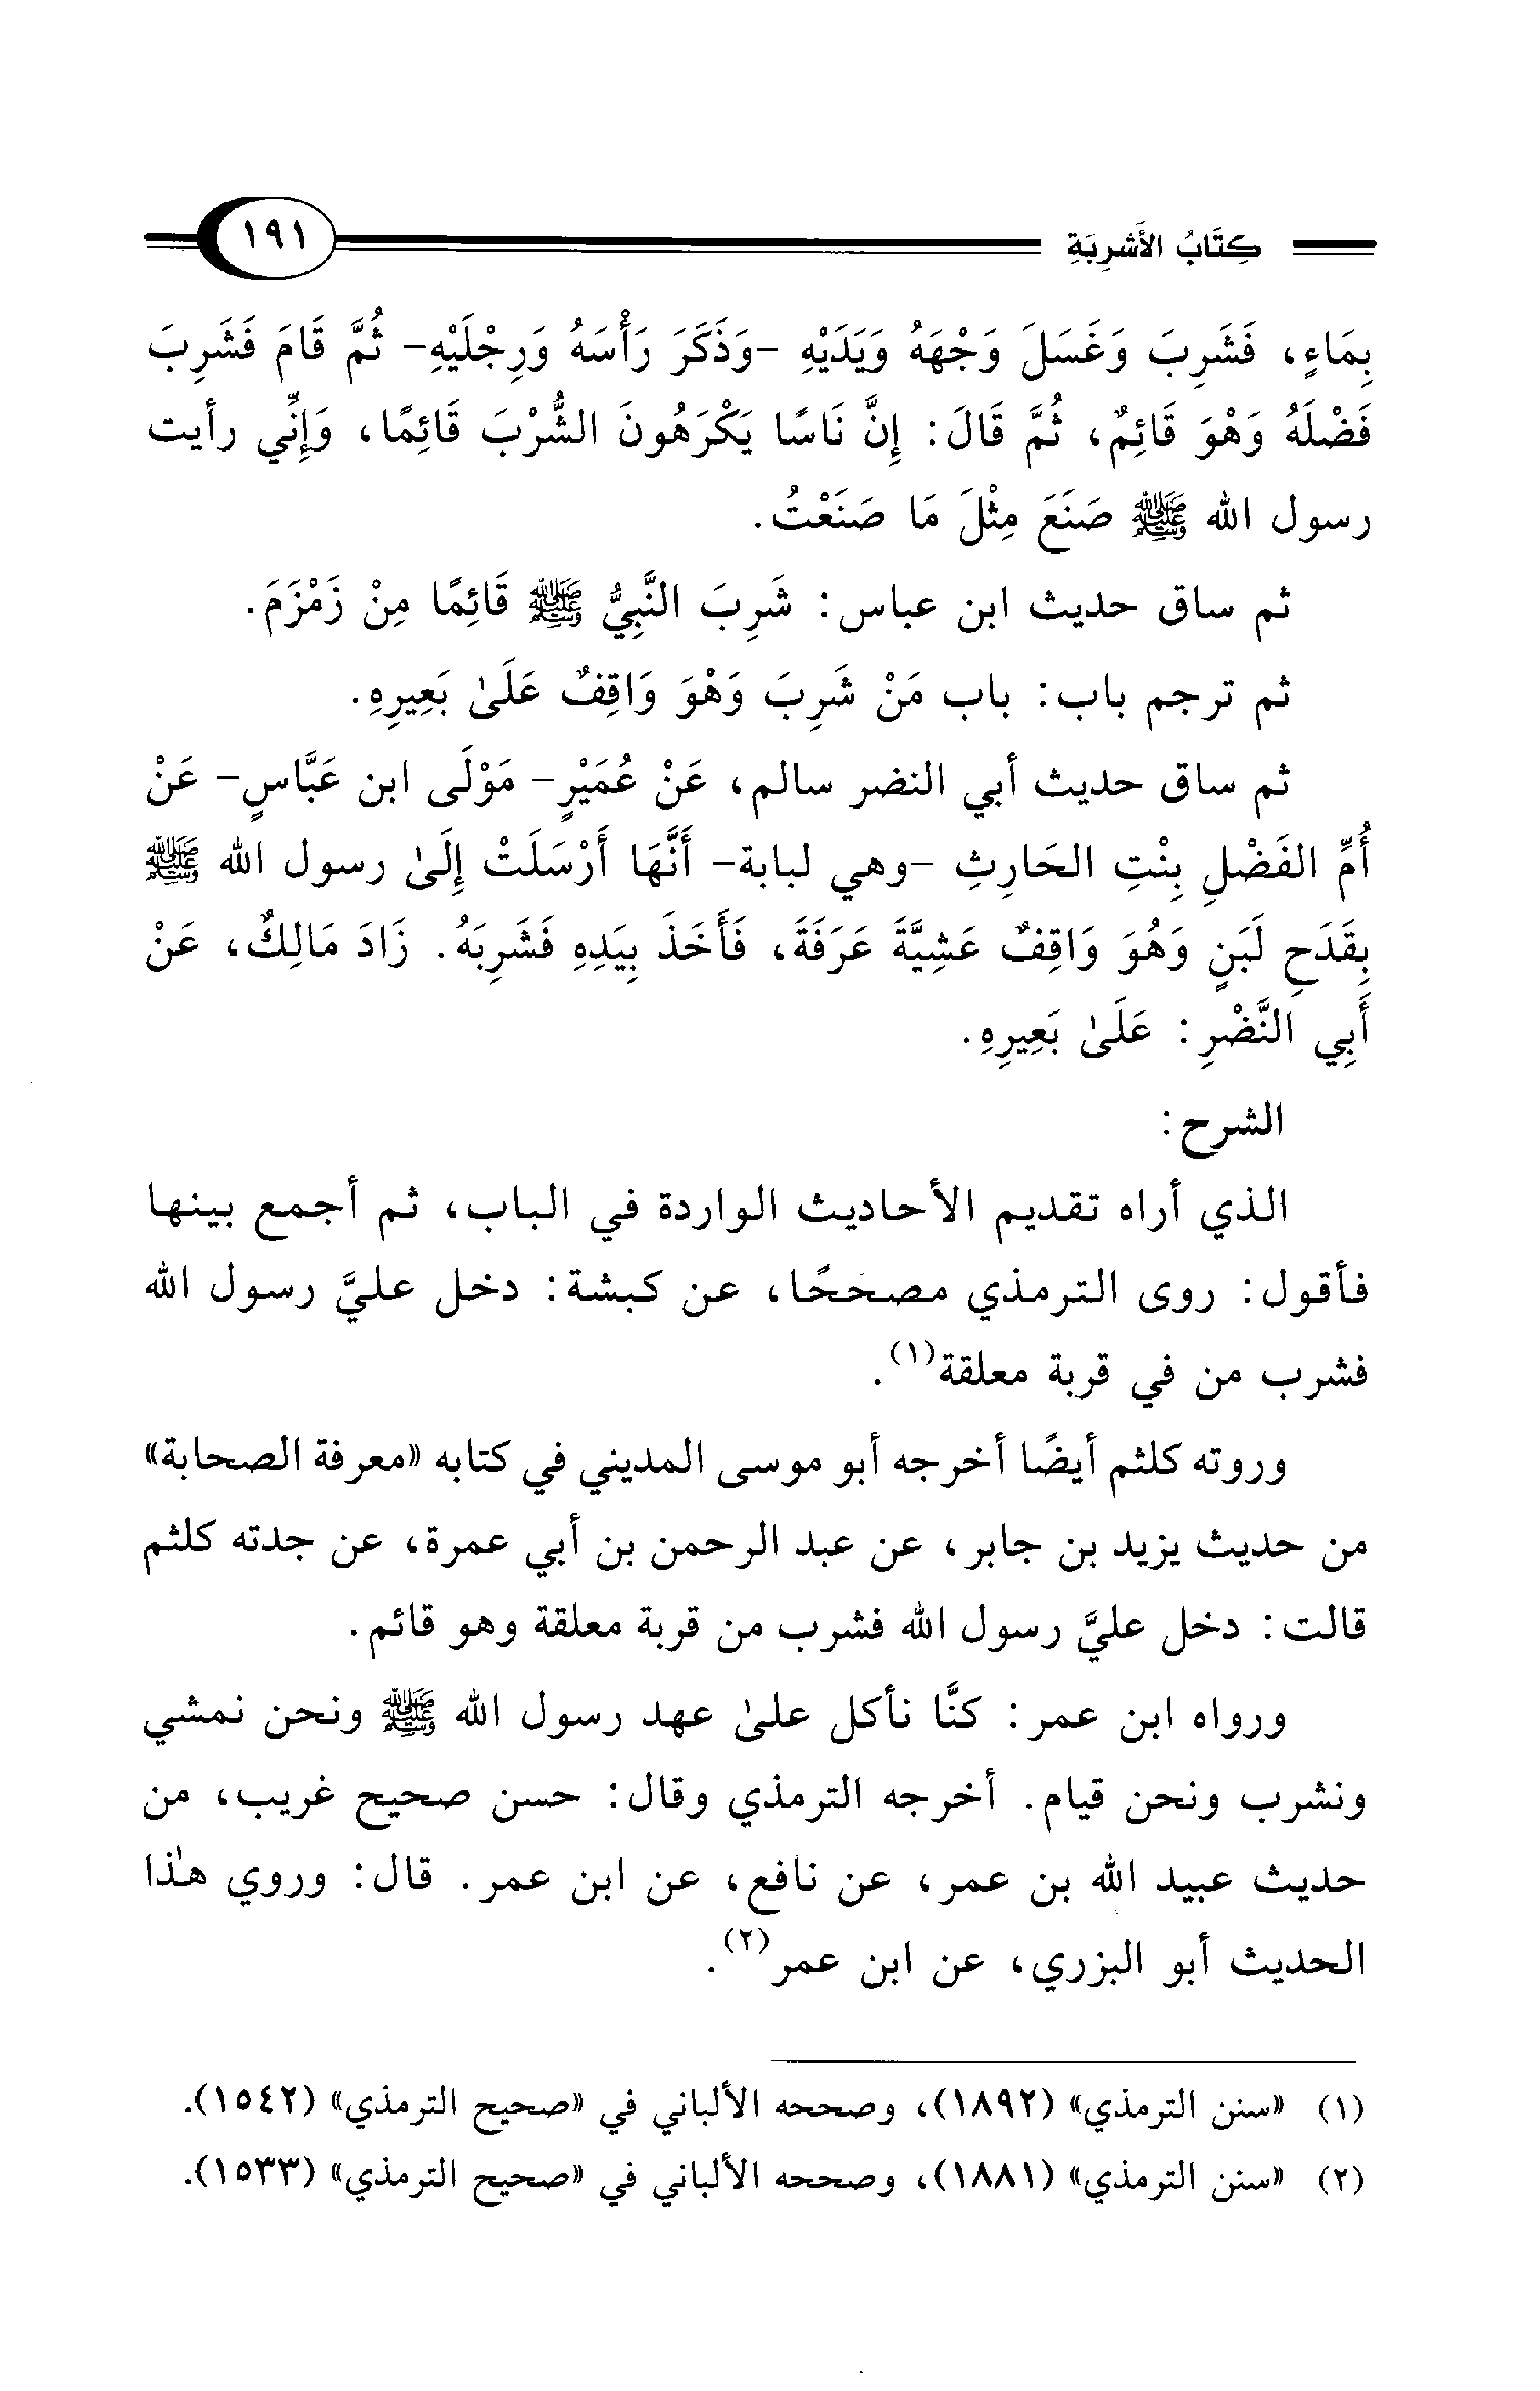 كِتَابُ الأَشرِبَةِ ١٩١
بِمَاءٍ، فَشَرِبَ وَغَسَلَ وَجْهَهُ وَيَدَيْهِ -وَذَكَرَ رَأْسَهُ وَرِجْلَيْهِ- ثُمَّ قَامَ فَشَرِبَ
فَضْلَهُ وَهْوَ قَائِمٌ، ثُمَّ قَالَ: إِنَّ نَاسًا يَكْرَهُونَ الشُّرْبَ قَائِمًا، وَإِنِّي رأيت
رسول الله ﷺ صَنَعَ مِثْلَ مَا صَنَعْتُ.
ثم ساق حديث ابن عباس: شَرِبَ النَّبِيُّ ﷺ قَائِمًا مِنْ زَمْزَمَ.
ثم ترجم باب: باب مَنْ شَرِبَ وَهْوَ وَاقِفٌ عَلَىٰ بَعِيرِهِ.
ثم ساق حديث أبي النضر سالم، عَنْ عُمَيْرٍ- مَوْلَى ابن عَبَّاسٍ- عَنْ
أُمِّ الفَضْلِ بِنْتِ الحَارِثِ -وهي لبابة- أَنَّهَا أَرْسَلَتْ إِلَىٰ رسول الله ﷺ
بِقَدَحِ لَبَنٍ وَهُوَ وَاقِفٌ عَشِيَّةَ عَرَفَةَ، فَأَخَذَ بِيَدِهِ فَشَرِبَهُ. زَادَ مَالِكٌ، عَنْ
أَبِي النَّضْرِ: عَلَىٰ بَعِيرِهِ.
الشرح:
الذي أراه تقديم الأحاديث الواردة في الباب، ثم أجمع بينها
فأقول: روى الترمذي مصححًا، عن كبشة: دخل عليَّ رسول الله
فشرب من في قربة معلقة(١).
وروته كلثم أيضًا أخرجه أبو موسى المديني في كتابه «معرفة الصحابة»
من حديث يزيد بن جابر، عن عبد الرحمن بن أبي عمرة، عن جدته كلثم
قالت: دخل عليَّ رسول الله فشرب من قربة معلقة وهو قائم.
ورواه ابن عمر: كنَّا نأكل علىٰ عهد رسول الله ﷺ ونحن نمشي
ونشرب ونحن قيام. أخرجه الترمذي وقال: حسن صحيح غريب، من
حديث عبيد الله بن عمر، عن نافع، عن ابن عمر. قال: وروي هٰذا
الحديث أبو البزري، عن ابن عمر(٢).
(١) «سنن الترمذي» (١٨٩٢)، وصححه الألباني في «صحيح الترمذي» (١٥٤٢).
(٢) «سنن الترمذي» (١٨٨١)، وصححه الألباني في «صحيح الترمذي» (١٥٣٣).